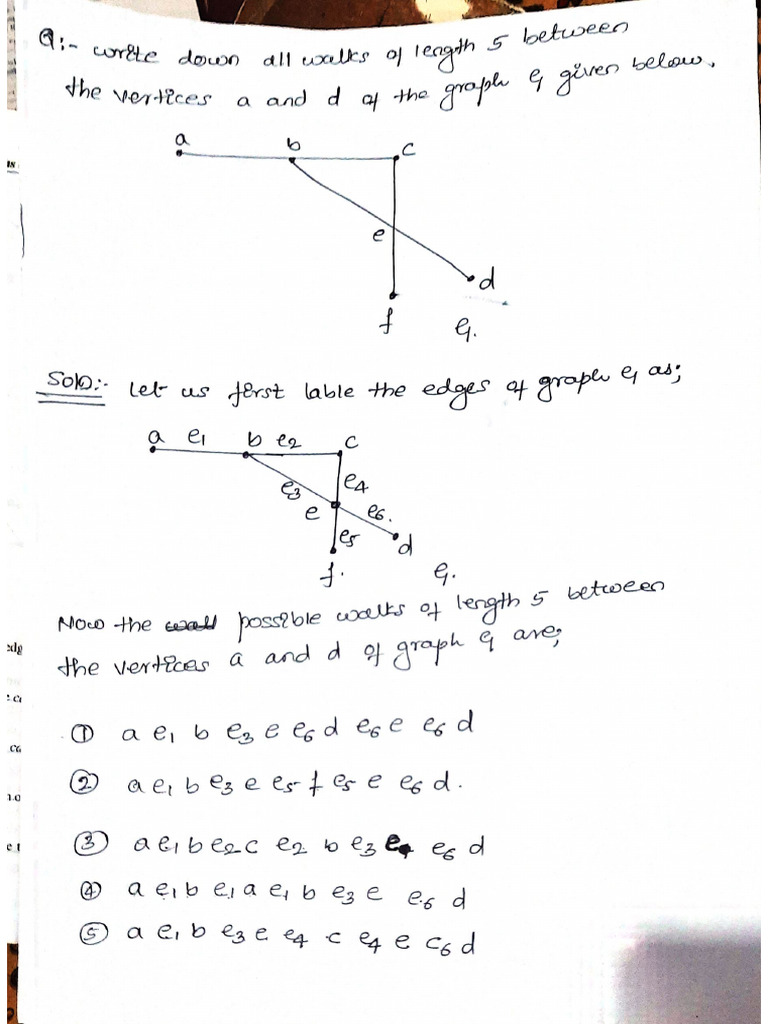 Q:- write down all walks of length 5 between
the vertices a and d of the graph G given below.
a b c
e
d
f G.
Soln:- Let us first lable the edges of graph G as;
a e1 b e2 c
e3 e4
e e6.
e5 d
f. G.
Now the possible walks of length 5 between
the vertices a and d of graph G are;
① a e1 b e3 e e6 d e6 e e6 d
② a e1 b e3 e e5 f e5 e e6 d.
③ a e1 b e2 c e2 b e3 e e6 d
④ a e1 b e1 a e1 b e3 e e6 d
⑤ a e1 b e3 e e4 c e4 e e6 d